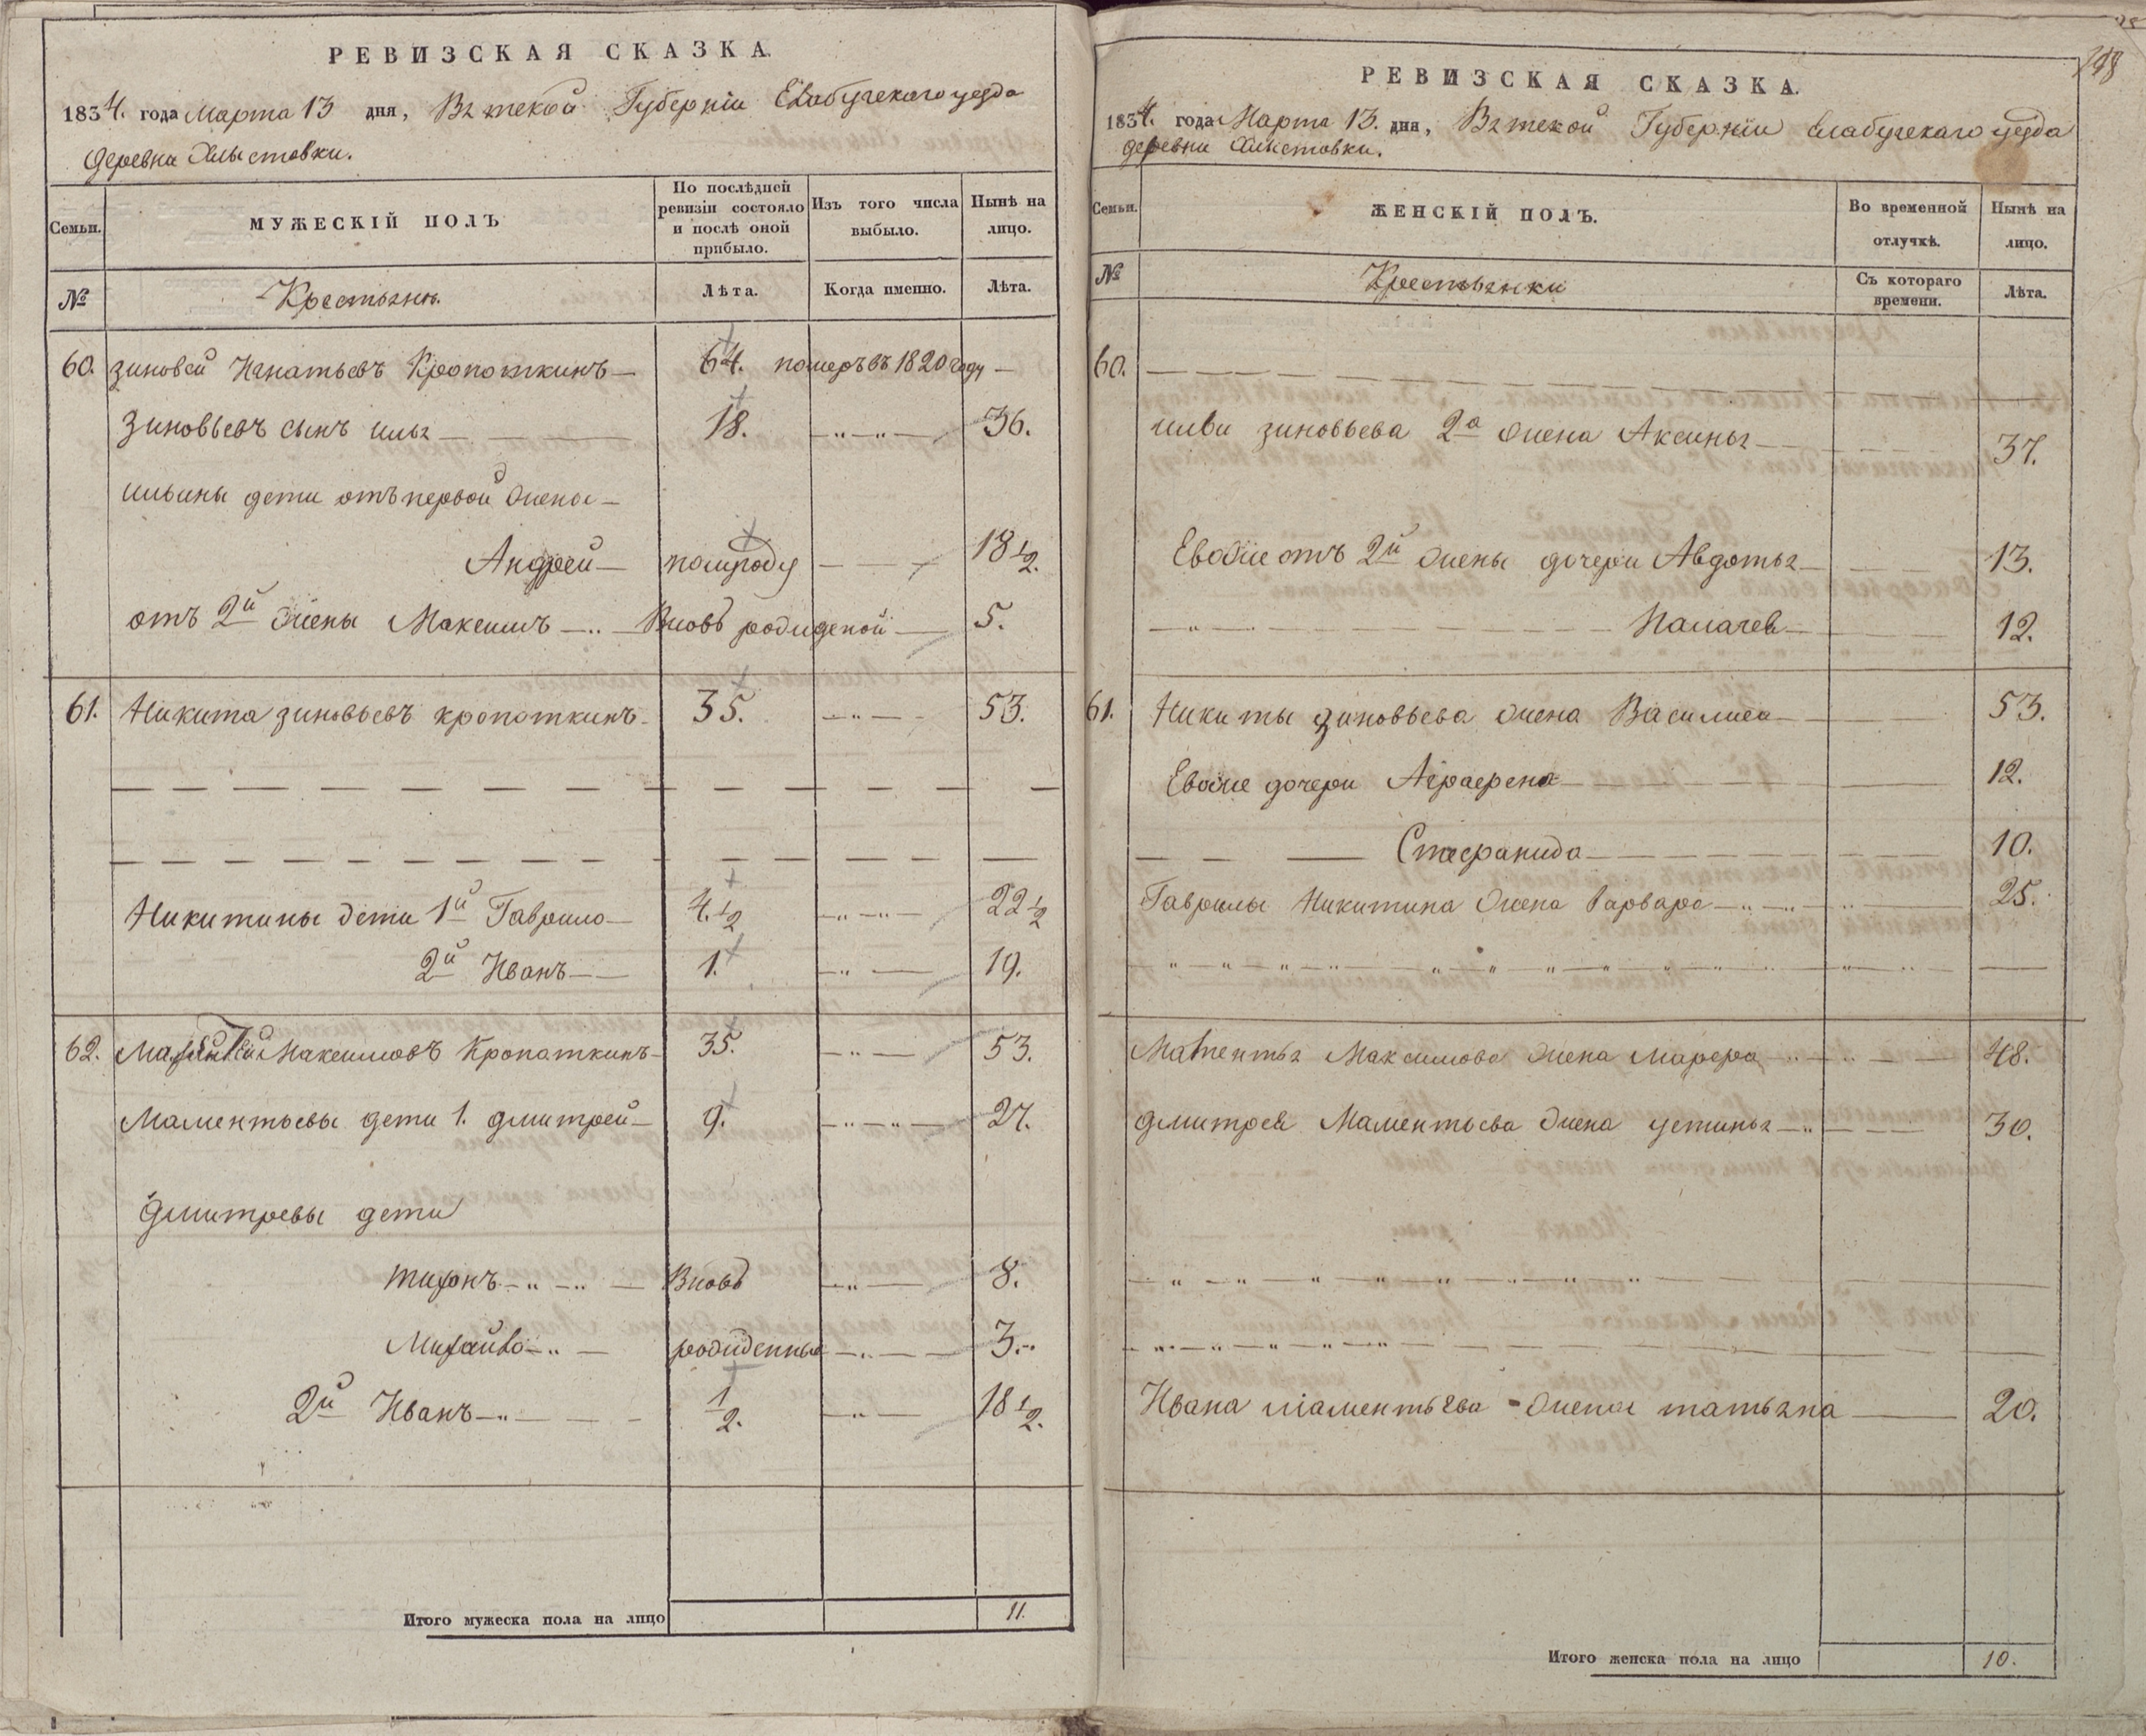 РЕВИЗСКАЯ СКАЗКА.
1834. года Марта 13 дня, Вятской Губерніи Елабугскаго уезда
деревни Хлыстовки.
Семьи.
МУЖЕСКІЙ ПОЛЪ
По послѣдней ревизіи состояло и послѣ оной прибыло.
Изъ того числа выбыло.
Нынѣ на лицо.
№
Крестьянъ.
Лѣта.
Когда именно.
Лѣта.
60. Зиновей Игнатьевъ Кропоткинъ — 64. померъ въ 1820 году —
Зиновьевъ сынъ Илья — 18. — „ — „ — 36.
Ильины дети отъ первой жены —
Андрей — полугоду — — — 18 1/2.
отъ 2й жены Максимъ — Вновь рожденой — 5.
61. Никита Зиновьевъ Кропоткинъ — 35. — „ — 53.
Никитины дети 1й Гаврило — 4. 1/2 — „ — „ — 22 1/2
2й Иванъ — 1. — „ — 19.
62. Максимовъ Кропоткинъ — 35. — „ — 53.
Маментьевы дети 1. Дмитрей — 9. — „ — „ — 27.
Дмитревы дети
Тихонъ — „ — „ — Вновь — „ — 8.
Михайло — „ — рожденные — „ — 3.
2й Иванъ — „ — 1/2. — „ — 18 1/2.
Итого мужеска пола на лицо 11.
РЕВИЗСКАЯ СКАЗКА.
1834. года Марта 13. дня, Вятской Губерніи Елабугскаго уезда
деревни Хлыстовки.
Семьи.
ЖЕНСКІЙ ПОЛЪ.
Во временной отлучкѣ.
Нынѣ на лицо.
№
Крестьянки
Съ котораго времени.
Лѣта.
60.
Ильи Зиновьева 2а жена Аксинья — 37.
Евоже отъ 2й жены дочери Авдотья — 13.
— „ — 12.
61. Никиты Зиновьева жена Василиса — 53.
Евоже дочери Аграфена — 12.
Стефанида — 10.
Гаврилы Никитина жена Варвара — „ — „ — 25.
Маментья Максимова жена Марфа — „ — „ — 48.
Дмитрея Маментьева жена Устинья — „ — 30.
Ивана Маментьева жена Татьяна — 20.
Итого женска пола на лицо 10.